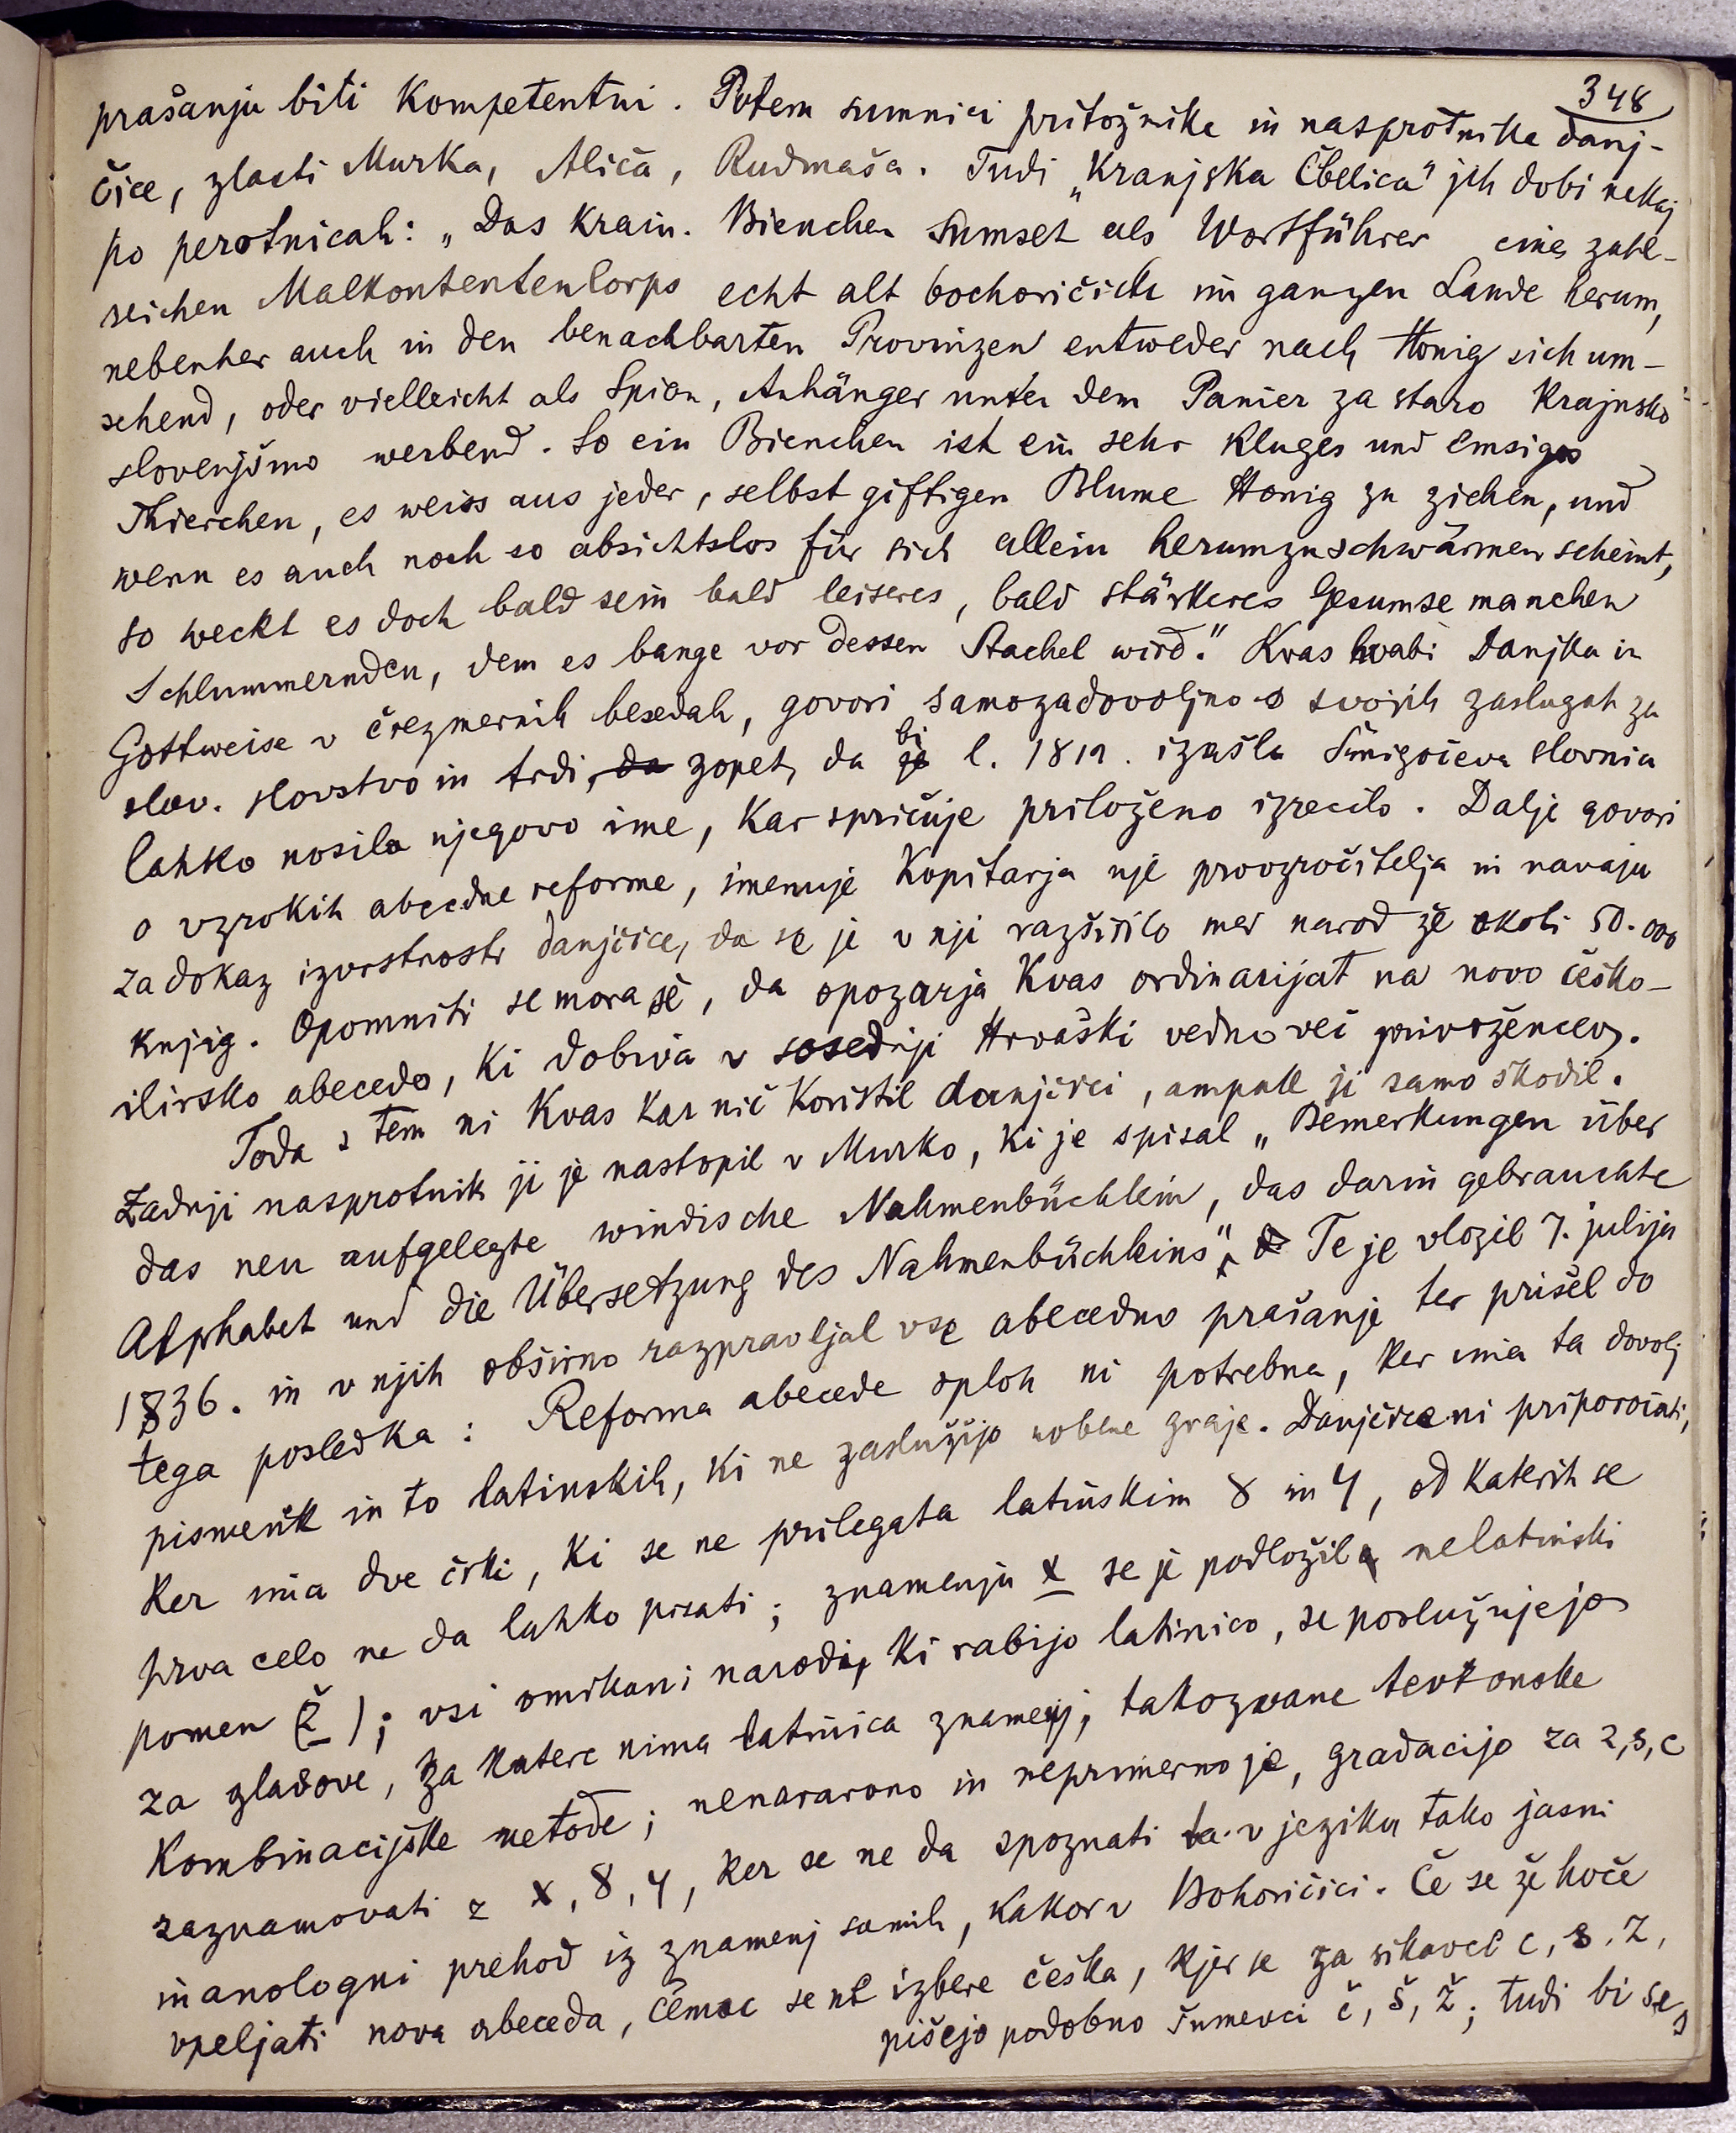 348
prašanju biti kompetentni. Potem sumniči pritožnike in nasprotnike danj-
čice, zlasti Murka, Aliča, Rudmaša. Tudi „Kranjska Čbelica" jih dobi nekaj
po perotnicah: „Das Krain. Bienchen sumset als Wortführer eines zahl-
reichen Malkontentencorps echt alt bochoričisch im ganzen Lande herum,
nebenher auch in den benachbarten Provinzen entweder nach Honig sich um-
sehend, oder vielleicht als Spion, Anhänger unter dem Panier za staro Krajnsko
slovenjšno werbend. So ein Bienchen ist ein sehr kluges und emsiges
Thierchen, es weiss aus jeder, selbst giftigen Blume Honig zu ziehen, und
wenn es auch noch so absichtslos für sich allein herumzuschwärmen scheint,
so weckt es doch bald sein bald leiseres, bald stärkeres Gesumse manchen
Schlummernden, dem es bange vor dessen Stachel wird." Kvas hvabi Danjka in
Gottweise v črezmernih besedah, govori samozadovoljno o svojih zaslugah za
slov. slovstvo in trdi, da zopet, da je bi l. 1812. izašla Šmigočeva slovnica
lahko nosila njegovo ime, kar spričuje priloženo izrecilo. Dalje govori
o vzrokih abecedne reforme, imenuje Kopitarja nje provzročitelja in navaja
za dokaz izvrstnosti danjčice, da se je v nji razširilo med narod že okoli 50.000
knjig. Opomniti se mora še, da opozarja Kvas ordinarijat na novo češko-
ilirsko abecedo, ki dobiva v sosednji Hrvaški vedno več privržencev.
Toda s tem ni Kvas kar nič koristil danjčici, ampak ji samo škodil.
Zadnji nasprotnik ji je nastopil v Murko, ki je spisal „Bemerkungen über
das neu aufgelegte windische Nahmenbüchlein, das darin gebrauchte
Alphabet und die Übersetzung des Nahmenbüchleins". Te je vložil 7. julija
1836. in v njih obširno razpravljal vse abecedno prašanje ter prišel do
tega posledka: Reforma abecede sploh ni potrebna, ker ima ta dovolj
pismenk in to latinskih, ki ne zaslužijo nobene graje. Danjčice ni priporočati,
ker ima dve črki, ki se ne prilegata latinskim 8 in 4, od katerih se
prva celo ne da lahko pisati; znamenju x se je podložil nelatinski
pomen (ž); vsi omikani narodi, ki rabijo latinico, se poslužujejo
za glasove, za katere nima latinica znamenj, takozvane tevtonske
kombinacijske metode; nenaravno in neprimerno je, gradacijo za z, s, c
zaznamovati z x, 8, 4, ker se ne da spoznati ta v jeziku tako jasni
in anologni prehod iz znamenj samih, kakor v Bohoričici. Če se že hoče
vpeljati nova abeceda, čemu se ne izbere češka, kjer se za sikavce c, s, z,
pišejo podobno šumevci č, š, ž; tudi bi se